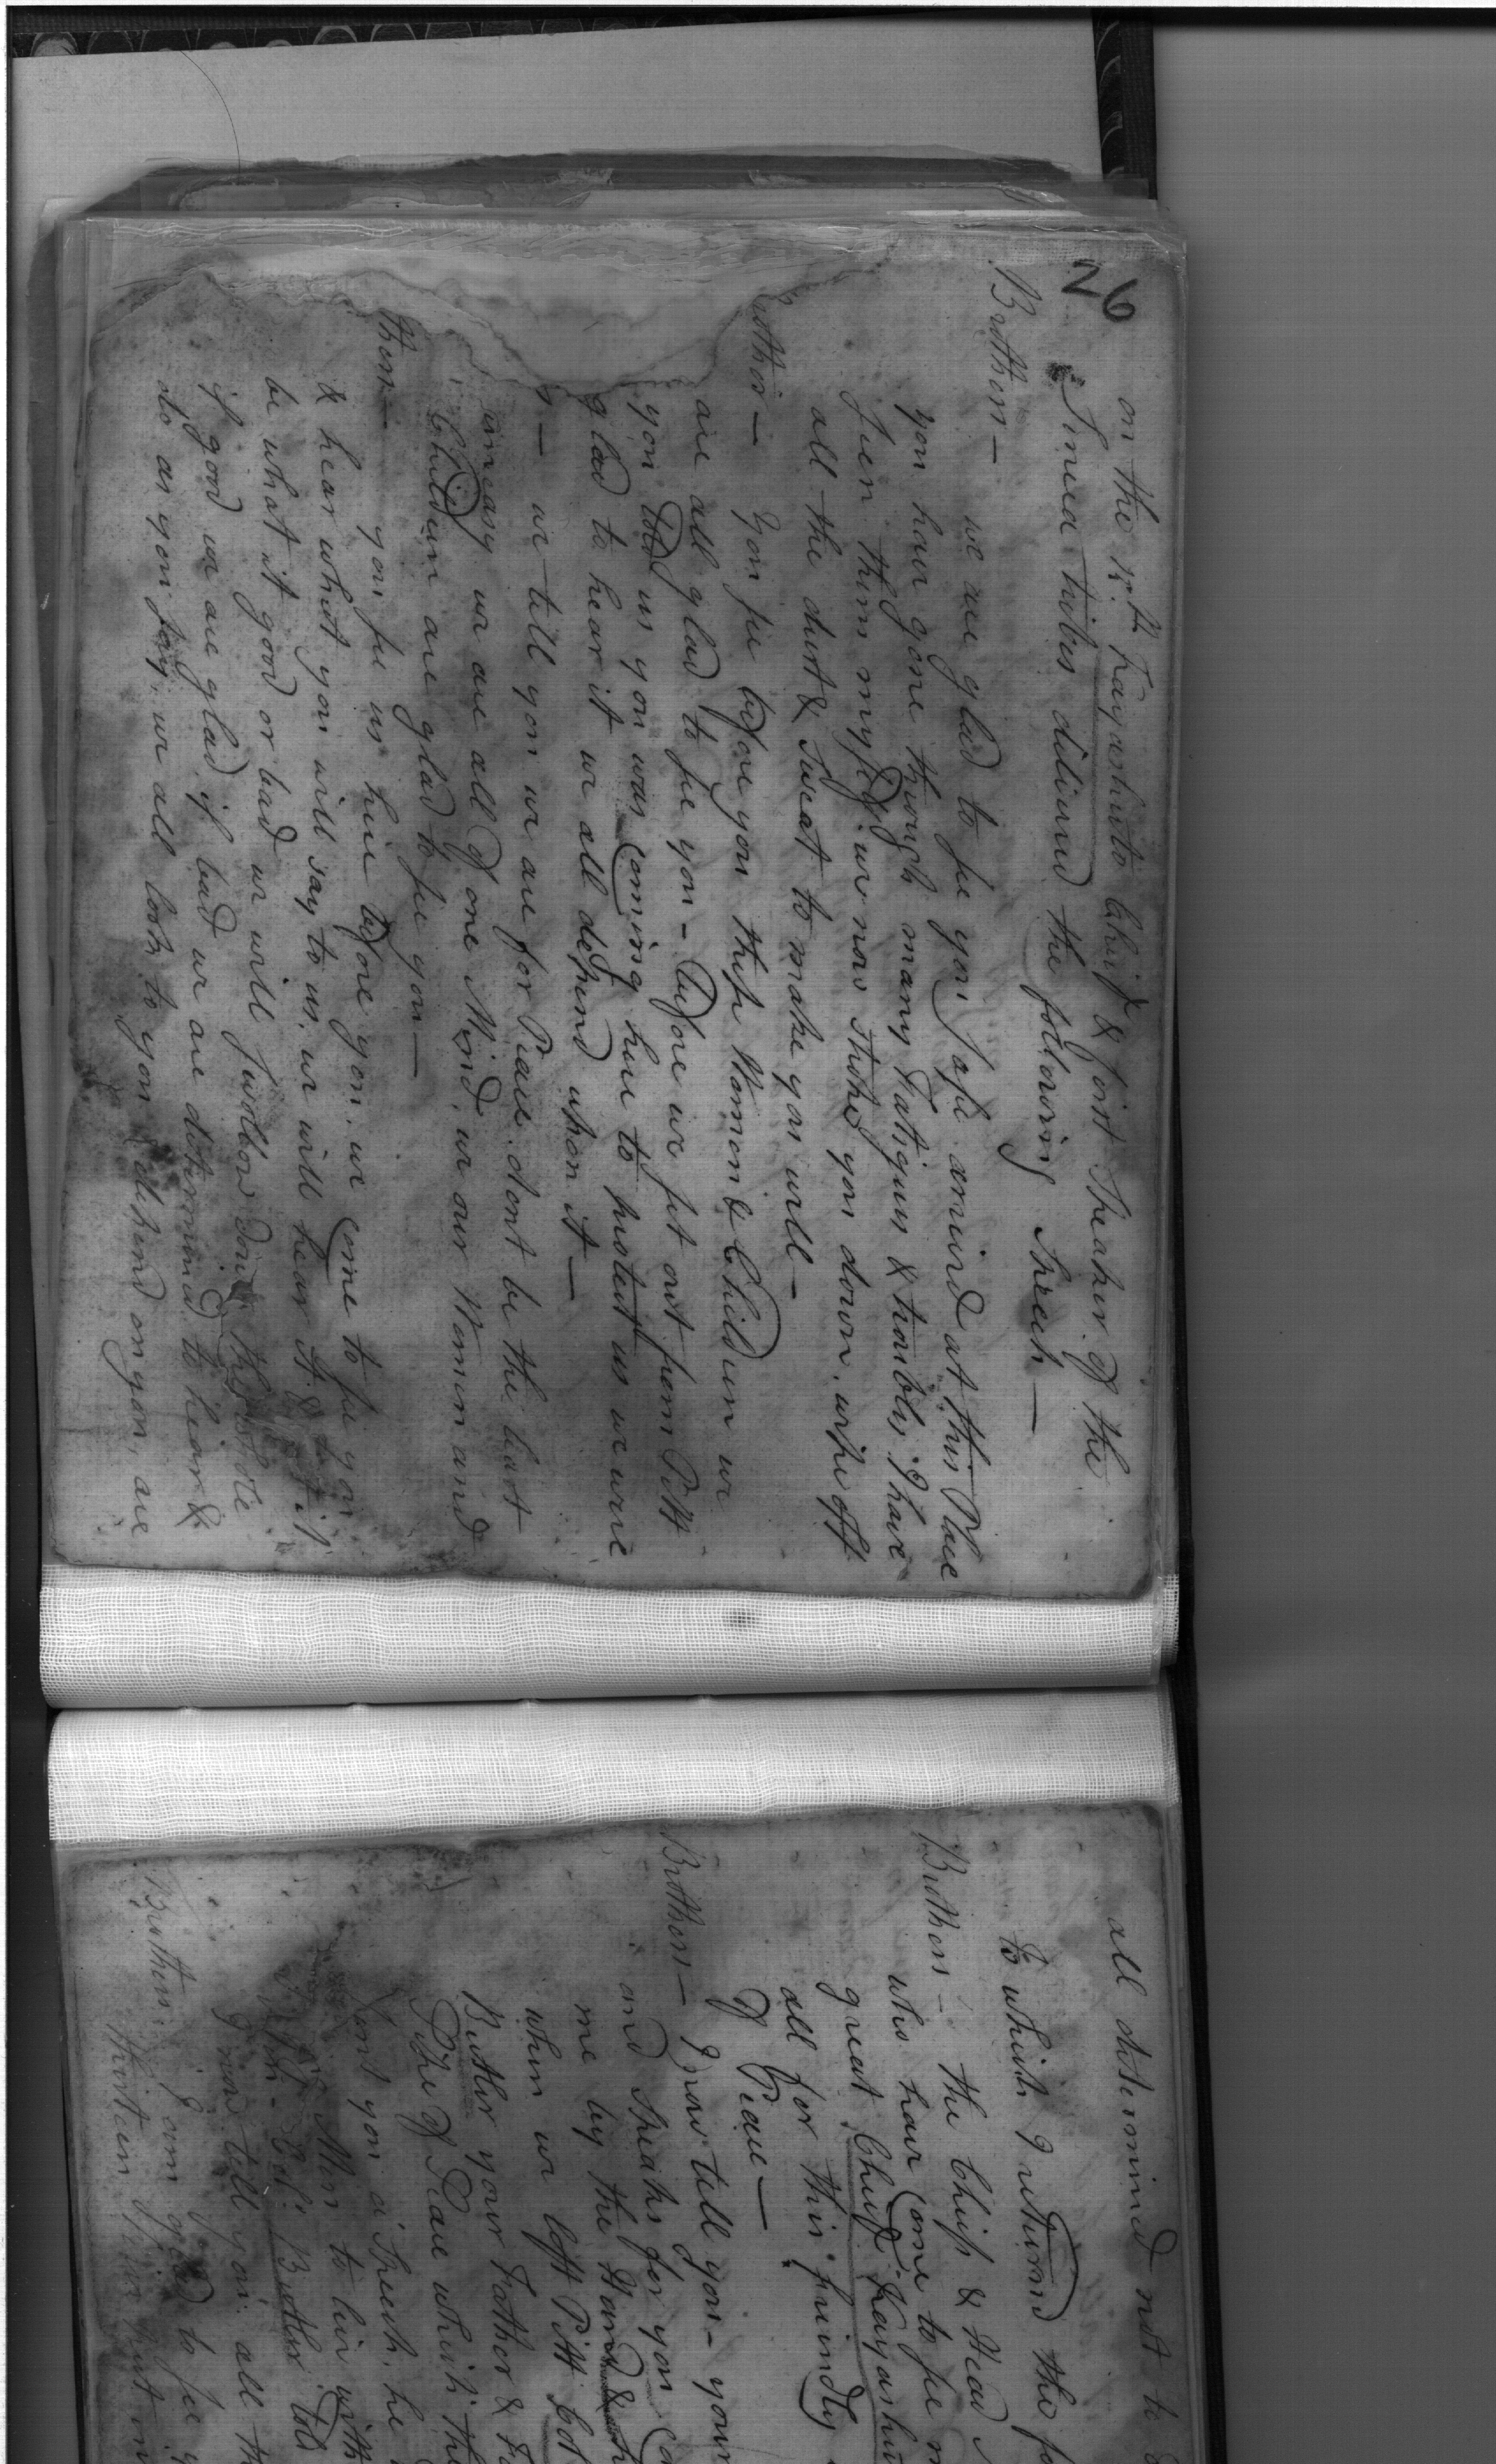 26
on the 15th Kayashuto Chief & first Speaker of the
Sinica tribes dilivred the following Speech —
Brothers —
we are glad to see you safe arrived at this Place
you have gone through many Fatigues & troubles, I have
seen them myself, we now Stroke you down, wipe off
all the durt & Sweat to make you well —
other — You see before you these Women & Children we
are all glad to see you — before we set out from Pitt
you told us you was Coming here to protect us we were
glad to hear it we all depend upon it —
s — we tell you we are for Peace, dont be the least
uneasy we are all of one Mind, we our Women and
Children are glad to see you —
thers — you see us here before you, we Come to see you
& hear what you will say to us, we will hear it &
be what it good or bad we will Swallow down the whole
if good we are glad, if bad we are determined to hear &
do as you say, we all look to you & depend on you, are
all determined not to
to which I returnd the
Brothers — the Chiefs & Head
who have Come to see
great Chief Kayashu
all for this friendly
of Peace —
Brothers — I now tell you — your
and Speaks for you
me by the Hand &
when we left Pitt Col
Brother your Father &
Pipe of Peace which
you a Speech, he
Men to live with
Brother told
I now tell you all
Brothers I am glad to see
thirteen